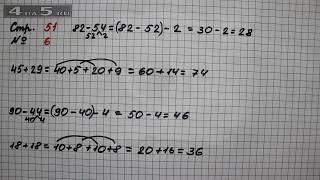 4na5.ru
Стр. 51 82-54=(82-52)-2=30-2=28
52 2
№ 6
45+29=40+5+20+9=60+14=74
90-44=(90-40)-4=50-4=46
40 4
18+18=10+8+10+8=20+16=36